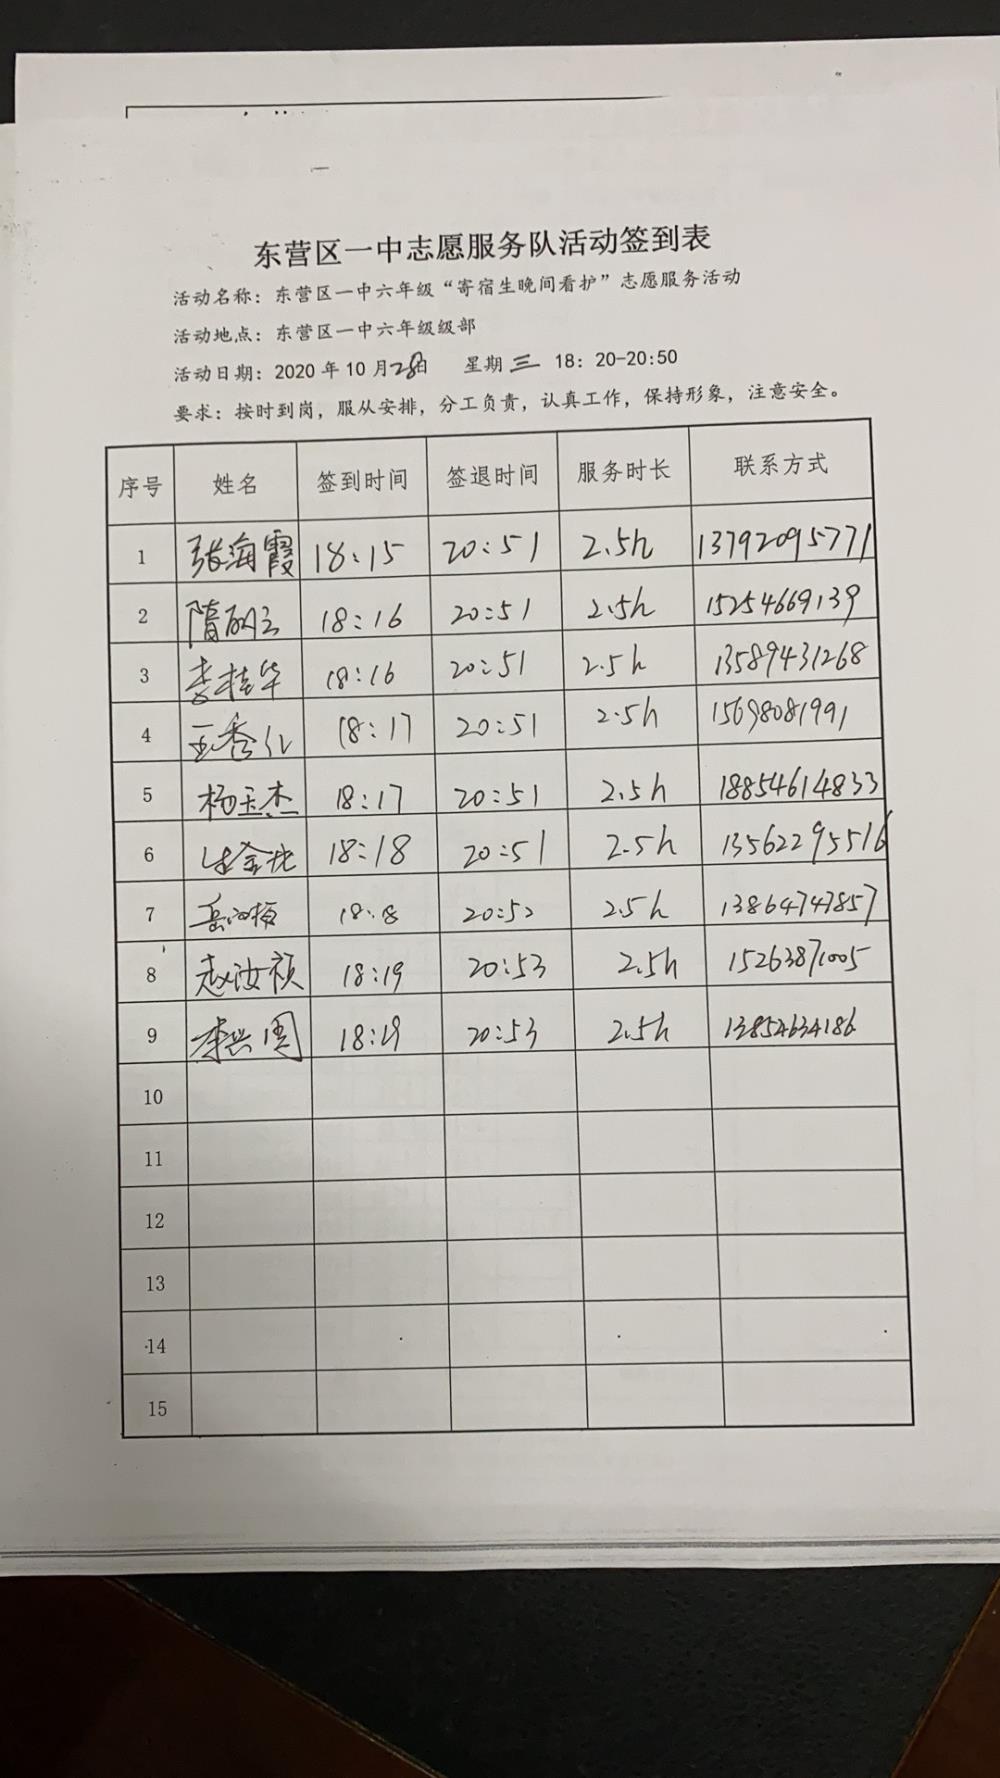 东营区一中志愿服务队活动签到表
活动名称：东营区一中六年级“寄宿生晚间看护”志愿服务活动
活动地点：东营区一中六年级级部
活动日期：2020年10月28日 星期三 18：20-20:50
要求：按时到岗，服从安排，分工负责，认真工作，保持形象，注意安全。
序号 姓名 签到时间 签退时间 服务时长 联系方式
1 张海霞 18:15 20:51 2.5h 13792095771
2 隋 18:16 20:51 2.5h 15254669139
3 李桂华 18:16 20:51 2.5h 13589431268
4 王秀 18:17 20:51 2.5h 15698081991
5 杨玉杰 18:17 20:51 2.5h 18854614833
6 18:18 20:51 2.5h 13562295516
7 岳 18:18 20:52 2.5h 13864747857
8 赵汝祯 18:19 20:53 2.5h 15263871005
9 李兴周 18:19 20:53 2.5h 13854634186
10
11
12
13
14
15